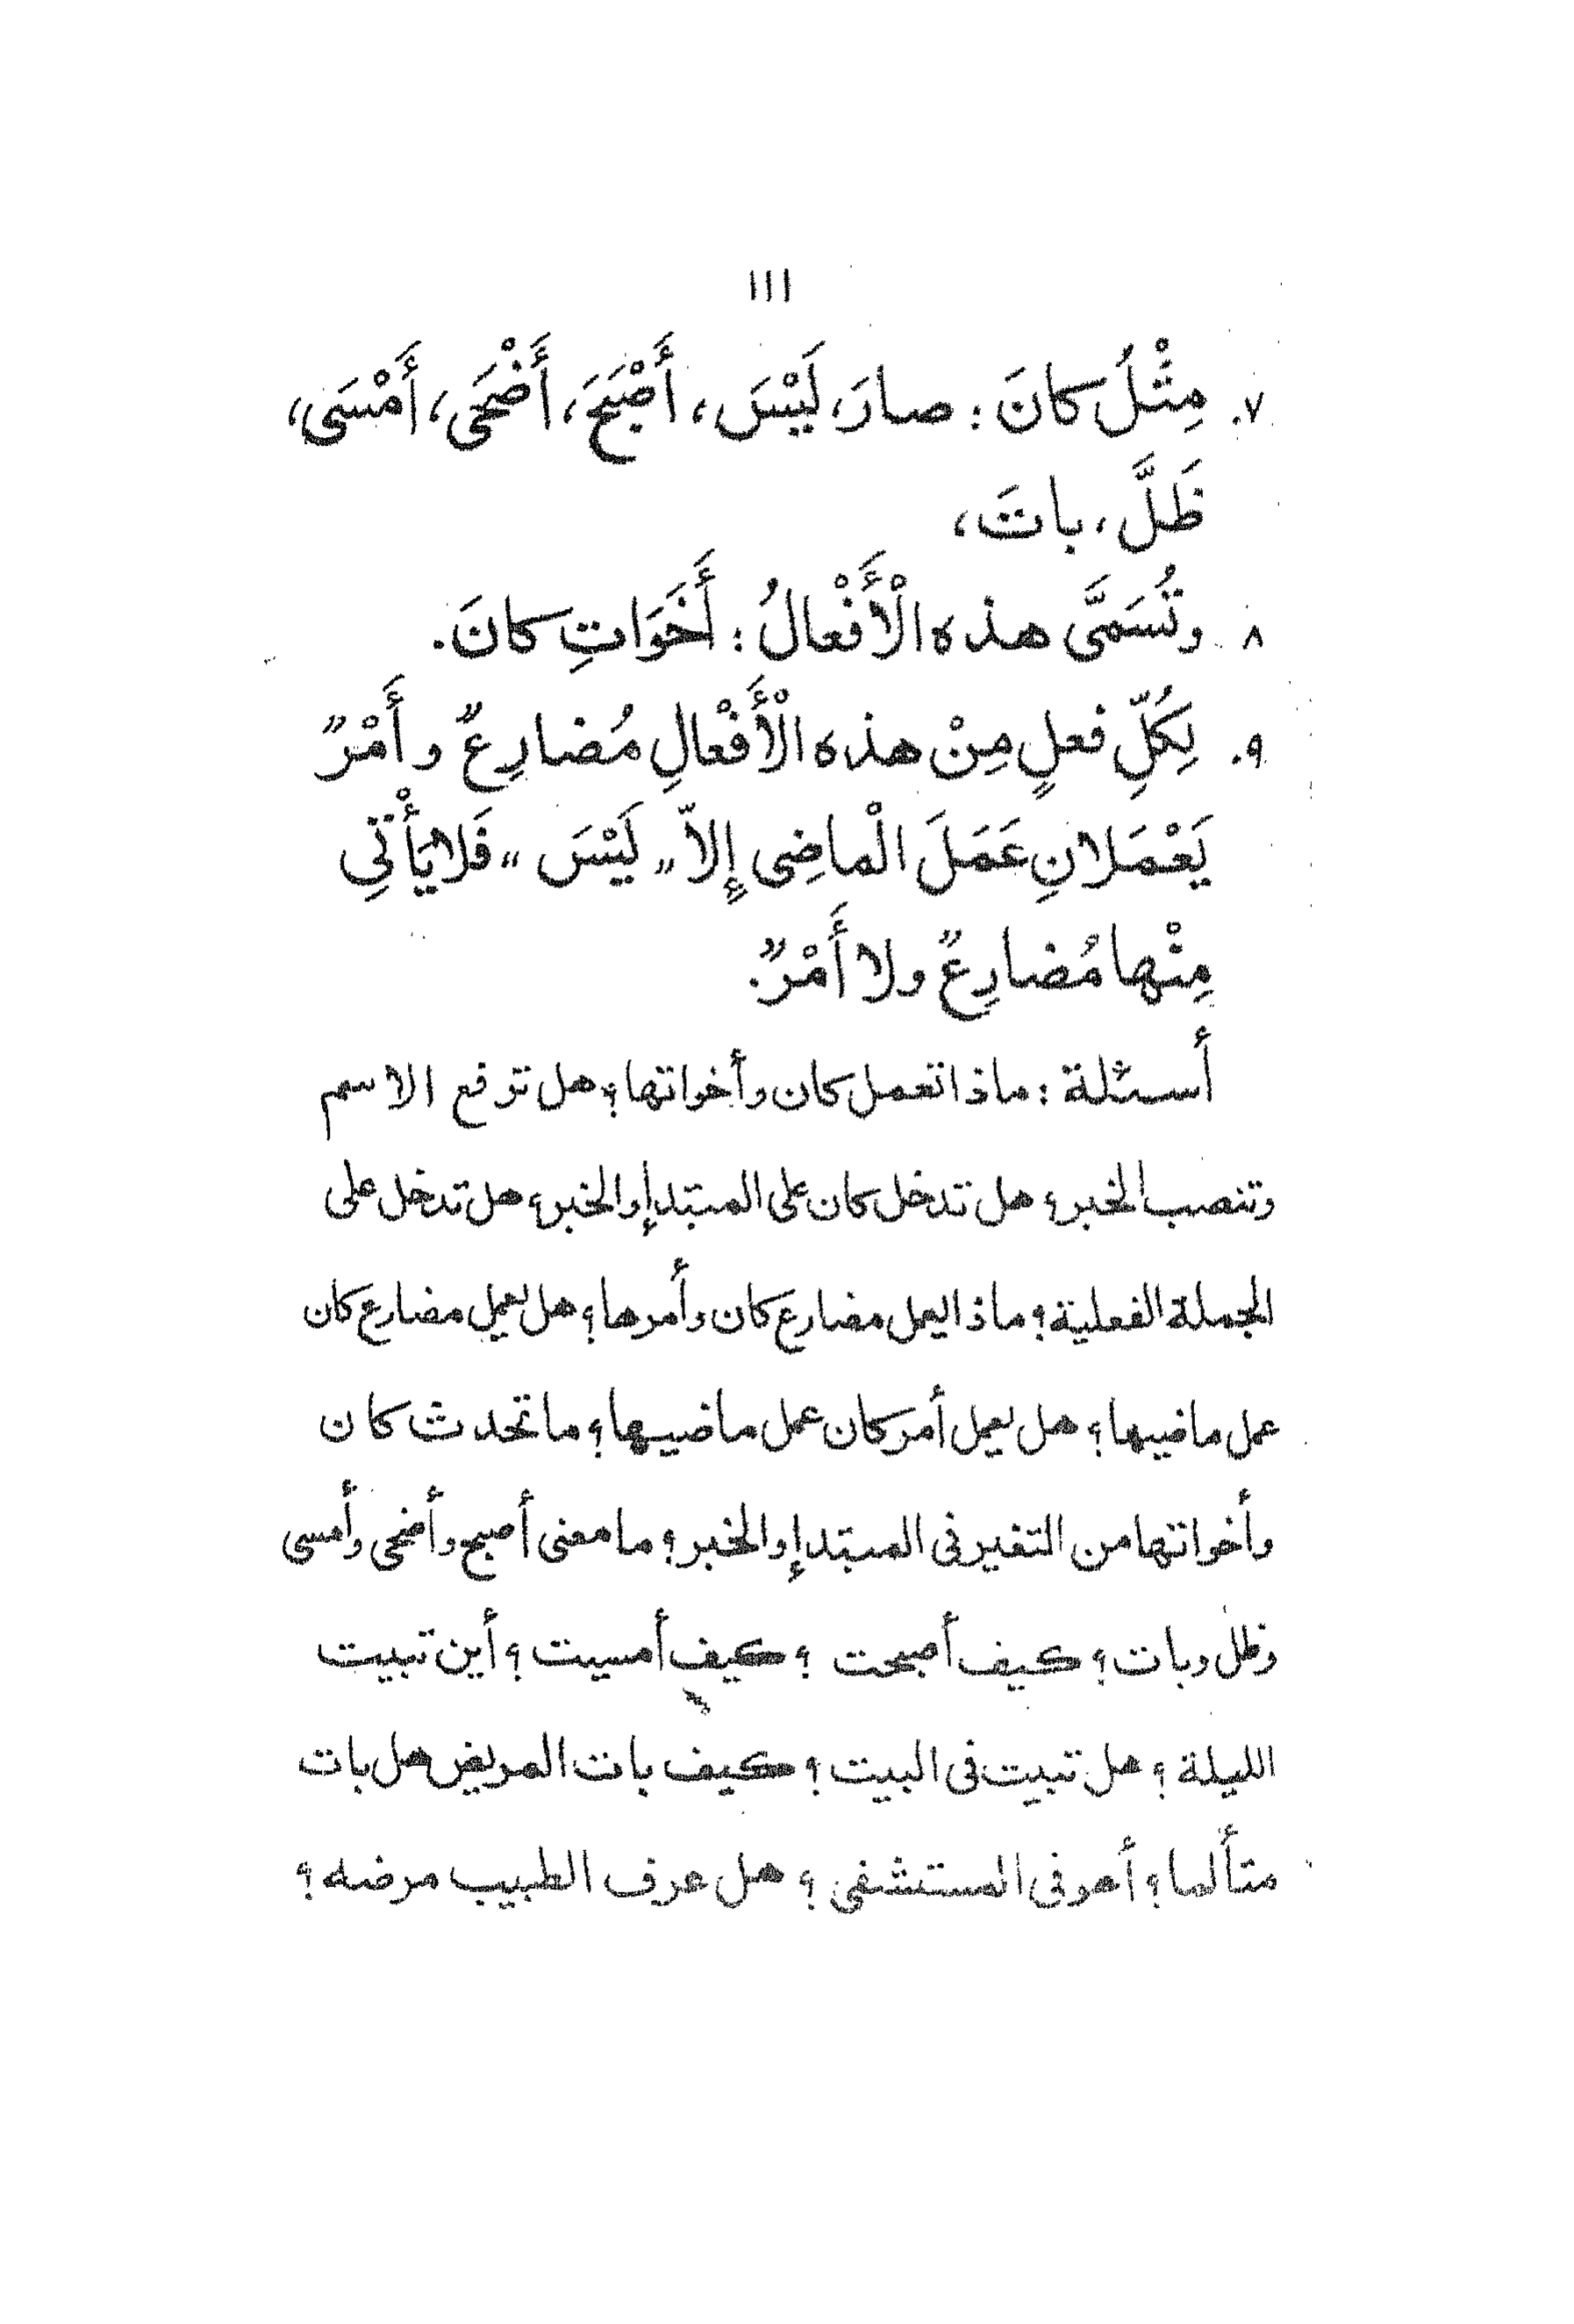 ١١١
٧. مِثْلُ كانَ : صارَ، لَيْسَ، أَصْبَحَ، أَضْحَى، أَمْسَى،
ظَلَّ، باتَ،
٨ وتُسَمَّى هذه الْأَفْعالُ : أَخَوَاتِ كانَ.
٩. لِكُلِّ فعلٍ مِنْ هذه الْأَفْعالِ مُضارِعٌ وأَمْرٌ
يَعْمَلانِ عَمَلَ الْماضِى إِلاّ „ لَيْسَ “ فَلا يَأْتِي
مِنْها مُضارِعٌ ولا أَمْرٌ.
أسئلة : ماذا تعمل كان وأخواتها؟ هل ترفع الاسم
وتنصب الخبر؟ هل تدخل كان على المبتدإ والخبر؟ هل تدخل على
الجملة الفعلية؟ ماذا يعمل مضارع كان وأمرها؟ هل يعمل مضارع كان
عمل ماضيها؟ هل يعمل أمر كان عمل ماضيها؟ ما تحدث كان
وأخواتها من التغير فى المبتدإ والخبر؟ ما معنى أصبح وأضحى وأمسى
وظل وبات؟ كيف أصبحت ؟ كيف أمسيت ؟ أين تبيت
الليلة ؟ هل تبيت فى البيت ؟ كيف بات المريض هل بات
متألما؟ أهو فى المستشفى ؟ هل عرف الطبيب مرضه ؟